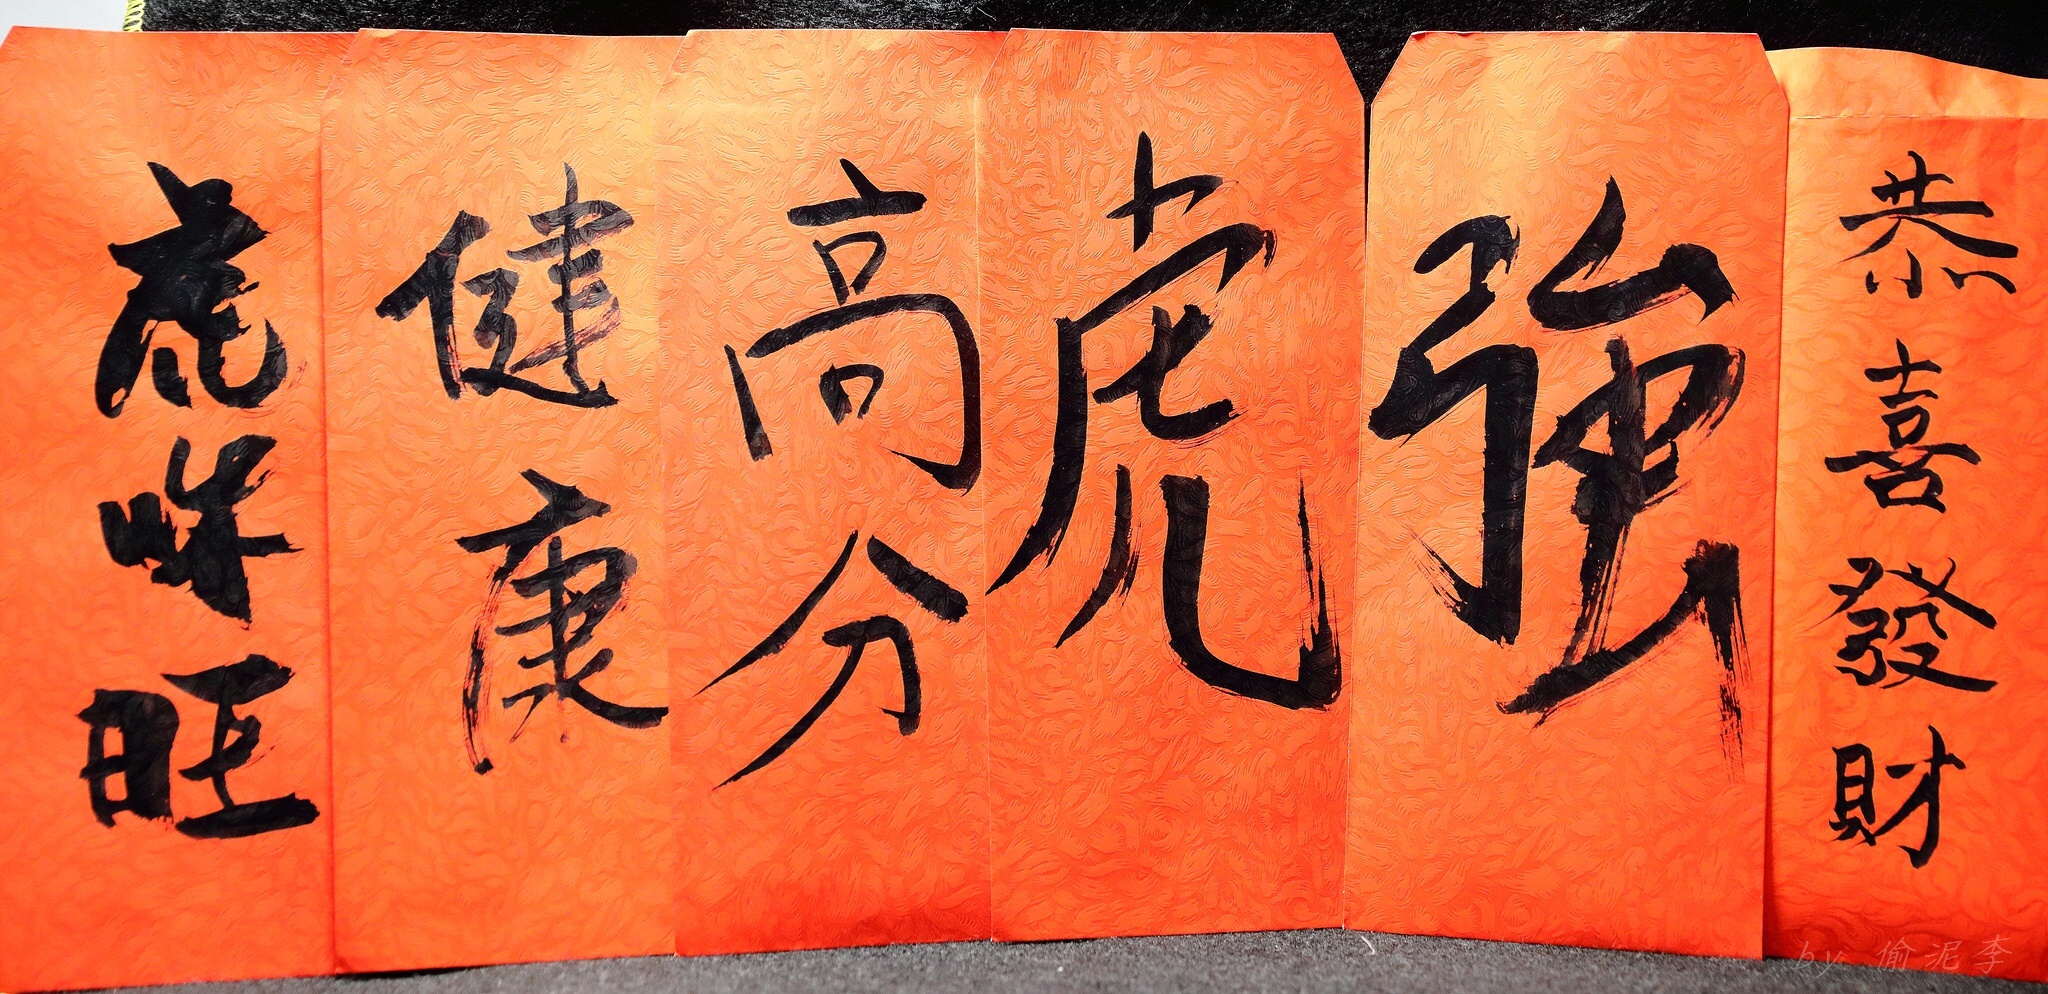 恭喜發財
強
虎
高分
健康
虎咪旺
by 偷泥李